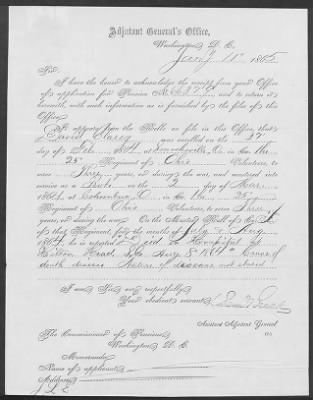 Adjutant General's Office,
Washington, D. C.
Jan'y 11th 1865
Sir:
I have the honor to acknowledge the receipt from your Office
of application for Pension No. and to return it
herewith, with such information as is furnished by the files of this
Office.
It appears from the Rolls on file in this Office, that
was enrolled on the 27
day of Feb. 1864, at in Co.
25 Regiment of Ohio Volunteers, to
serve Three years, or during the war, and mustered into
service as a on the 2 day of
1864, at Columbus, O, in Co. 25
Regiment of Ohio Volunteers, to serve Three
years, or during the war. On the Muster Roll of Co.
of that Regiment, for the months of July & Aug
1864, he is reported Died in Hospital at
Hilton Head S.C. Aug 8" 1864 Cause of
death disease Nature of disease not stated
I am, Sir, very respectfully,
Your obedient servant,
Assistant Adjutant General
The Commissioner of Pensions,
Washington, D. C.
Memoranda:
Name of applicant
Address